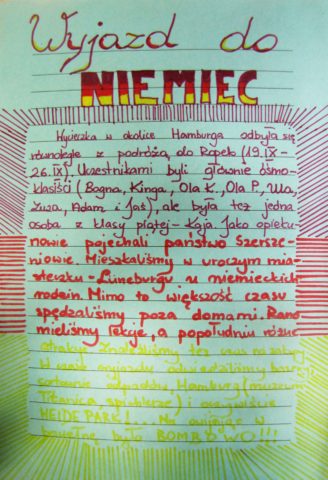 Wyjazd do
NIEMIEC
Wycieczka w okolice Hamburga odbyła się
równolegle z podróżą do Ropek (19.IX-
26.IX). Uczestnikami byli głównie ósmo-
klasiści (Bogna, Kinga, Ola K., Ola P., Ula,
Zuza, Adam i Jaś), ale była też jedna
osoba z klasy piątej - Kaja. Jako opieku-
nowie pojechali państwo Szersze-
niowie. Mieszkaliśmy w uroczym mia-
steczku - Lüneburgu u niemieckich
rodzin. Mimo to większość czasu
spędzaliśmy poza domami. Rano
mieliśmy lekcje, a popołudniu różne
atrakcje. Znaleźliśmy też czas na zakupy.
W czasie wyjazdu odwiedziliśmy
sortownię odpadów, Hamburg (muzeum
Titanica, spichlerze) i oczywiście
HEIDE PARK!... Nie owijając w
bawełnę było BOMBOWO!!!